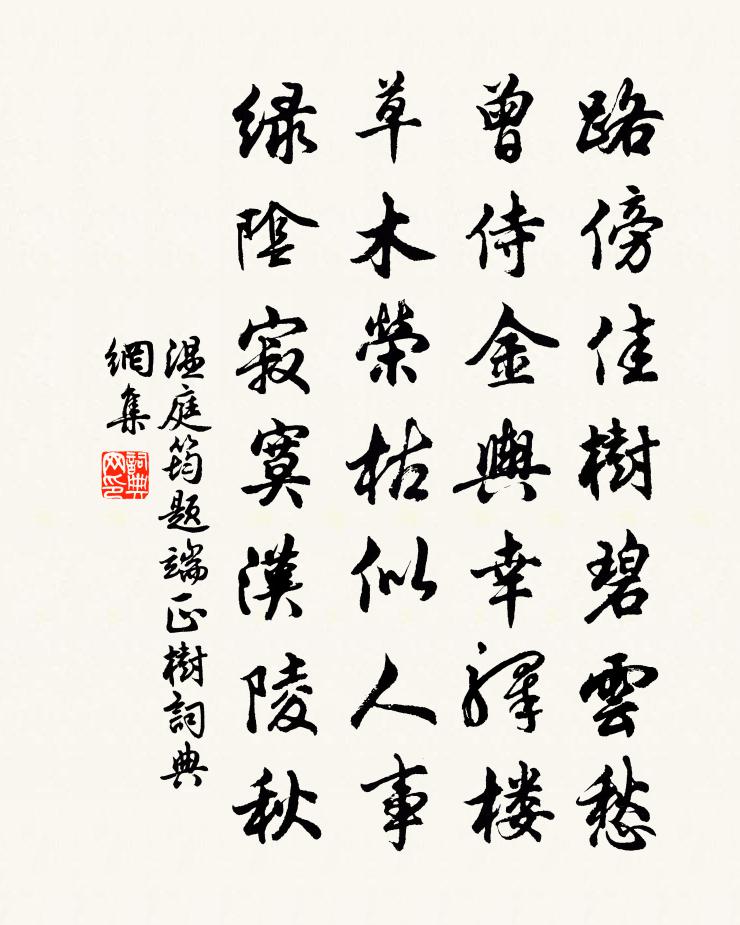 路傍佳樹碧雲愁
曾侍金輿幸驛楼
草木榮枯似人事
绿陰寂寞漢陵秋
温庭筠题端正樹詞典
網集
詞典
网印